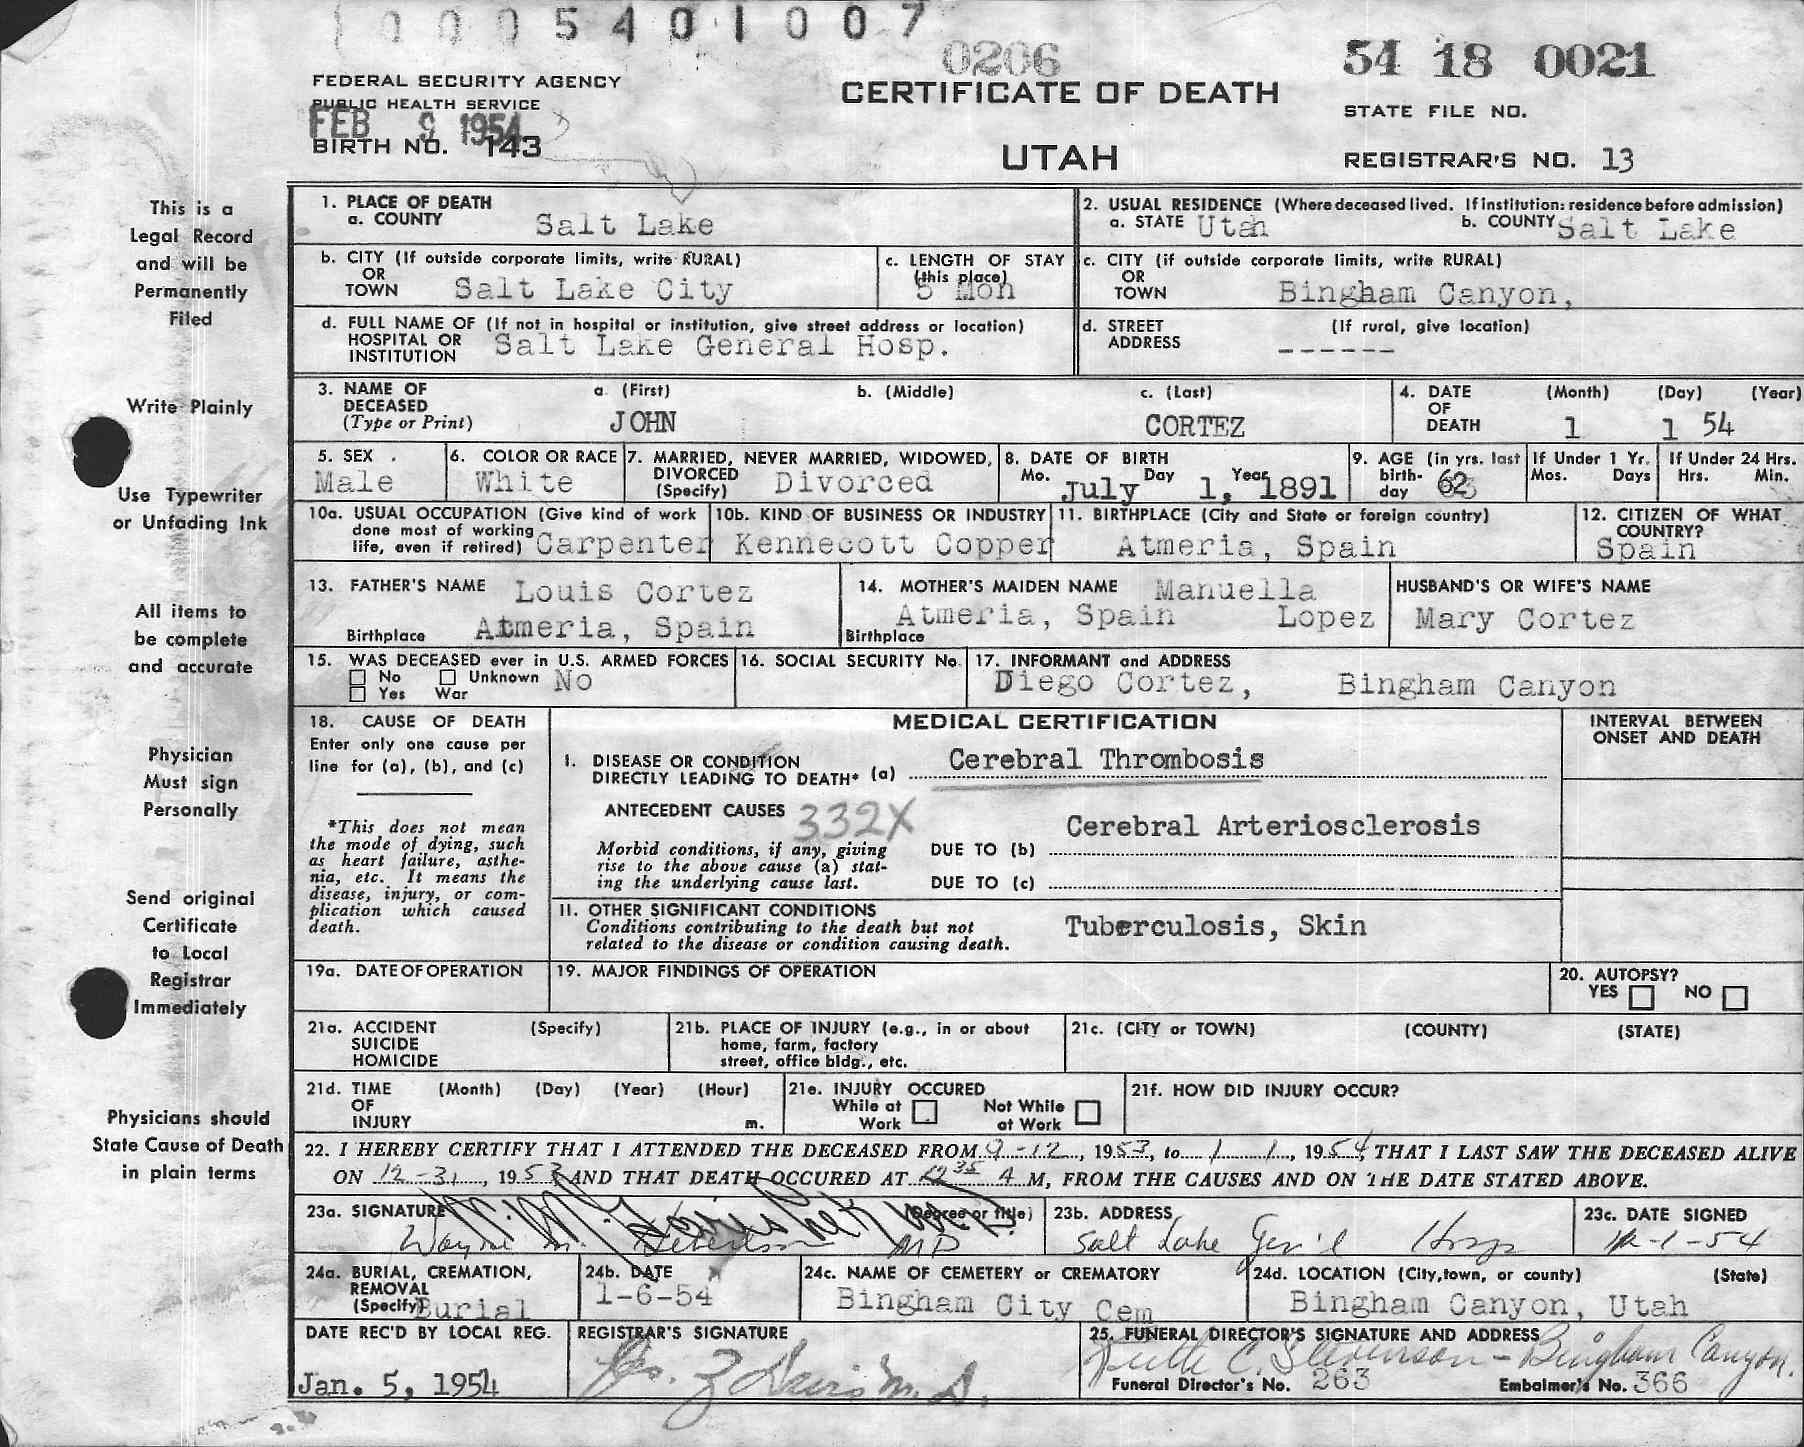 0005401007
0206
54 18 0021
FEDERAL SECURITY AGENCY
PUBLIC HEALTH SERVICE
FEB 9 1954
BIRTH NO. 143
CERTIFICATE OF DEATH
UTAH
STATE FILE NO.
REGISTRAR'S NO. 13
This is a
Legal Record
and will be
Permanently
Filed
Write Plainly
Use Typewriter
or Unfading Ink
All items to
be complete
and accurate
Physician
Must sign
Personally
Send original
Certificate
to Local
Registrar
Immediately
Physicians should
State Cause of Death
in plain terms
1. PLACE OF DEATH
a. COUNTY Salt Lake
2. USUAL RESIDENCE (Where deceased lived. If institution: residence before admission)
a. STATE Utah b. COUNTY Salt Lake
b. CITY (If outside corporate limits, write RURAL)
OR
TOWN Salt Lake City
c. LENGTH OF STAY
(this place)
5 Mon
c. CITY (if outside corporate limits, write RURAL)
OR
TOWN Bingham Canyon,
d. FULL NAME OF (If not in hospital or institution, give street address or location)
HOSPITAL OR
INSTITUTION Salt Lake General Hosp.
d. STREET (If rural, give location)
ADDRESS ------
3. NAME OF DECEASED (Type or Print)
a. (First) b. (Middle) c. (Last)
JOHN CORTEZ
4. DATE OF DEATH (Month) (Day) (Year)
1 1 54
5. SEX
Male
6. COLOR OR RACE
White
7. MARRIED, NEVER MARRIED, WIDOWED,
DIVORCED (Specify) Divorced
8. DATE OF BIRTH
Mo. July Day 1, Year 1891
9. AGE (in yrs. last
birthday 62
If Under 1 Yr.
Mos. Days
If Under 24 Hrs.
Hrs. Min.
10a. USUAL OCCUPATION (Give kind of work
done most of working
life, even if retired) Carpenter
10b. KIND OF BUSINESS OR INDUSTRY
Kennecott Copper
11. BIRTHPLACE (City and State or foreign country)
Atmeria, Spain
12. CITIZEN OF WHAT
COUNTRY?
Spain
13. FATHER'S NAME Louis Cortez
Birthplace Atmeria, Spain
14. MOTHER'S MAIDEN NAME Manuella
Atmeria, Spain Lopez
Birthplace
HUSBAND'S OR WIFE'S NAME
Mary Cortez
15. WAS DECEASED ever in U.S. ARMED FORCES
No Unknown No
Yes War
16. SOCIAL SECURITY No.
17. INFORMANT and ADDRESS
Diego Cortez, Bingham Canyon
18. CAUSE OF DEATH
Enter only one cause per
line for (a), (b), and (c)
*This does not mean
the mode of dying, such
as heart failure, asthe-
nia, etc. It means the
disease, injury, or com-
plication which caused
death.
MEDICAL CERTIFICATION
INTERVAL BETWEEN
ONSET AND DEATH
I. DISEASE OR CONDITION
DIRECTLY LEADING TO DEATH* (a) Cerebral Thrombosis
ANTECEDENT CAUSES 332X
Morbid conditions, if any, giving
rise to the above cause (a) stat-
ing the underlying cause last.
DUE TO (b) Cerebral Arteriosclerosis
DUE TO (c)
II. OTHER SIGNIFICANT CONDITIONS
Conditions contributing to the death but not
related to the disease or condition causing death.
Tuberculosis, Skin
19a. DATE OF OPERATION
19. MAJOR FINDINGS OF OPERATION
20. AUTOPSY?
YES NO
21a. ACCIDENT (Specify)
SUICIDE
HOMICIDE
21b. PLACE OF INJURY (e.g., in or about
home, farm, factory
street, office bldg., etc.
21c. (CITY or TOWN) (COUNTY) (STATE)
21d. TIME (Month) (Day) (Year) (Hour)
OF
INJURY m.
21e. INJURY OCCURED
While at Work Not While at Work
21f. HOW DID INJURY OCCUR?
22. I HEREBY CERTIFY THAT I ATTENDED THE DECEASED FROM 9-12, 1953, to 1 1, 1954, THAT I LAST SAW THE DECEASED ALIVE
ON 12-31, 1953 AND THAT DEATH OCCURED AT 12 35 A M, FROM THE CAUSES AND ON THE DATE STATED ABOVE.
23a. SIGNATURE (Degree or title)
Wayne M. MD
23b. ADDRESS
Salt Lake Gen'l Hosp
23c. DATE SIGNED
1-54
24a. BURIAL, CREMATION,
REMOVAL
(Specify) Burial
24b. DATE
1-6-54
24c. NAME OF CEMETERY or CREMATORY
Bingham City Cem
24d. LOCATION (City, town, or county) (State)
Bingham Canyon, Utah
DATE REC'D BY LOCAL REG.
Jan. 5, 1954
REGISTRAR'S SIGNATURE
Geo. Z Davis M.D.
25. FUNERAL DIRECTOR'S SIGNATURE AND ADDRESS
C. Stevenson - Bingham Canyon.
Funeral Director's No. 263 Embalmer's No. 366